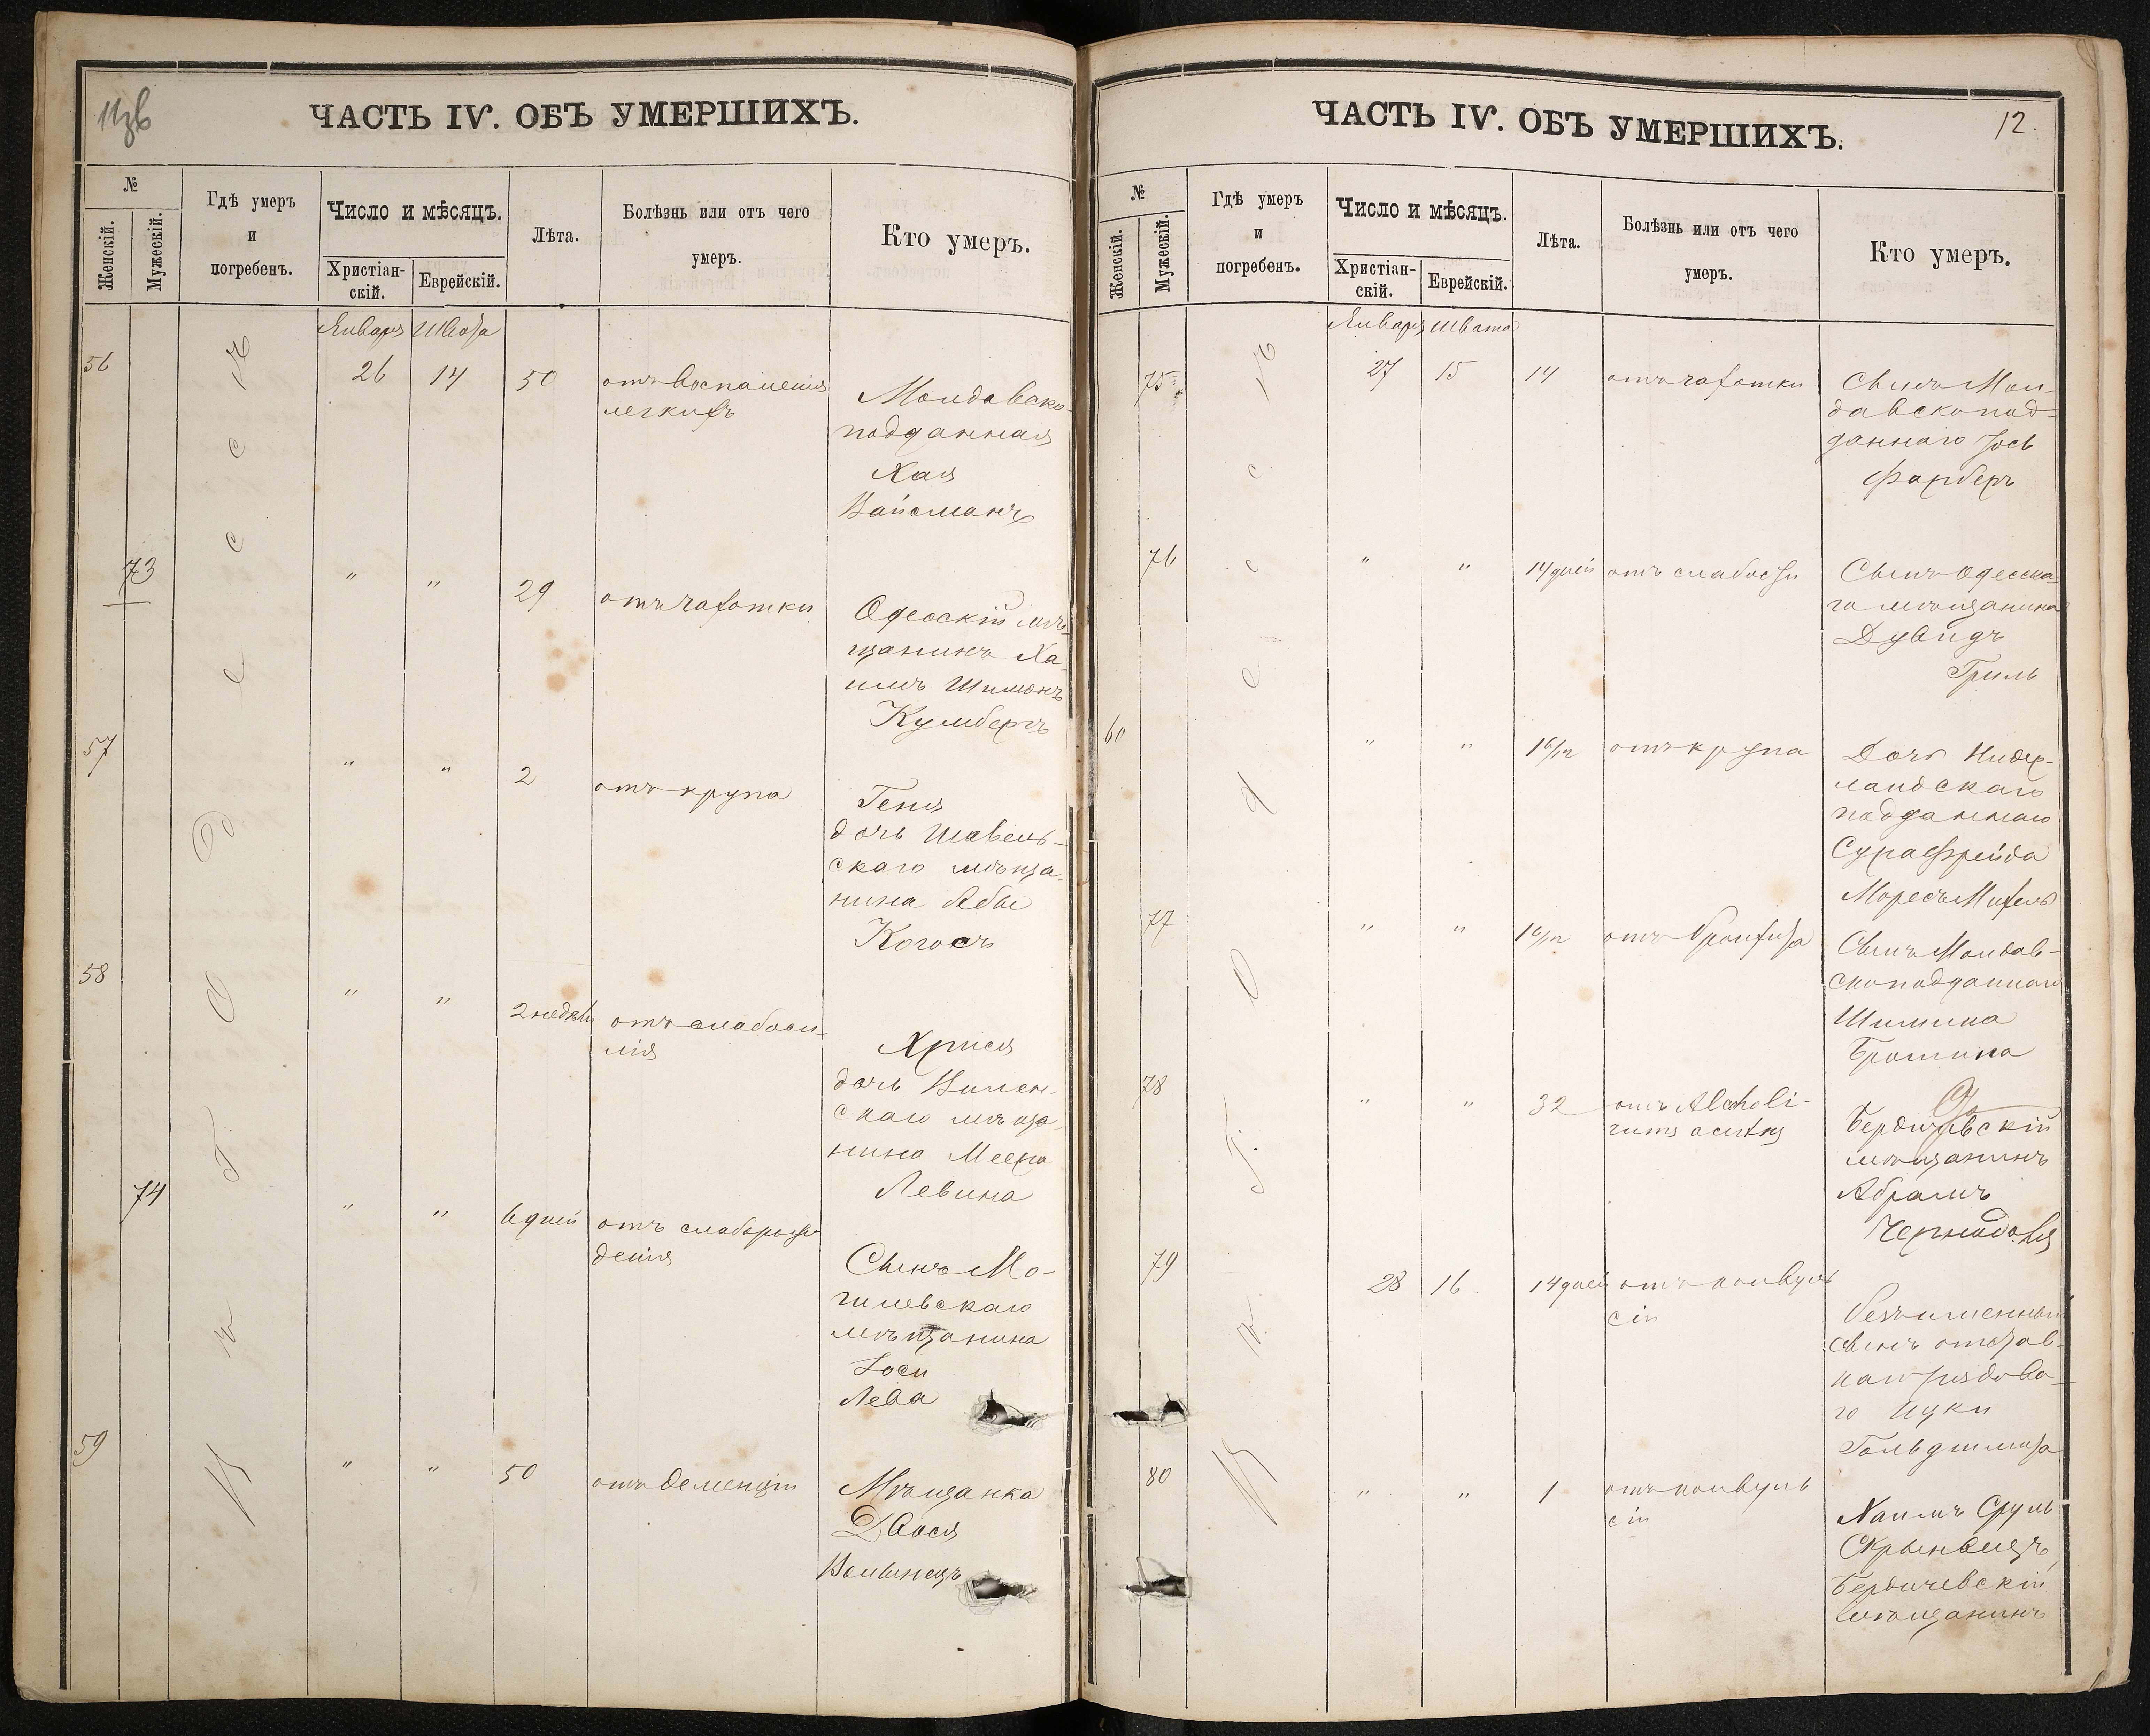 11зв
ЧАСТЬ IV. ОБЪ УМЕРШИХЪ.
№
Женскій.
Мужескій.
Гдѣ умеръ
и
погребенъ.
Число и мѣсяцъ.
Христіан-
скій.
Еврейскій.
Лѣта.
Болѣзнь или отъ чего
умеръ.
Кто умеръ.
Января Швата
56 26 14 50 отъ воспаленія
легкихъ
Молдавско-
подданная
Хая
Вайсманъ
73 " " 29 отъ чахотки
Одесскій мѣ-
щанинъ Ха-
имъ Шимонъ
Кумбергъ
57 " " 2 отъ крупа
Геня
дочь Шавель-
скаго мѣща-
нина Абы
Когосъ
58 " " 2 недѣли отъ слабоси-
лія
Хрися
дочь Вилен-
скаго мѣща-
нина Меера
Левина
74 " " 6 дней отъ слаборож-
денія
Сынъ Мо-
гилевскаго
мѣщанина
Іоси
Лева
59 " " 50 отъ деменціи
Мѣщанка
Двося
Волынецъ
Въ г. Одессѣ
ЧАСТЬ IV. ОБЪ УМЕРШИХЪ.
12.
№
Женскій.
Мужескій.
Гдѣ умеръ
и
погребенъ.
Число и мѣсяцъ.
Христіан-
скій.
Еврейскій.
Лѣта.
Болѣзнь или отъ чего
умеръ.
Кто умеръ.
Января Швата
75 27 15 14 отъ чахотки
Сынъ Мол-
давскопод-
даннаго Іось
Фарберъ
76 " " 14 дней отъ слабости
Сынъ Одесска-
го мѣщанина
Дувидъ
Гриль
60 " " 1 6/12 отъ крупа
Дочь Нидер-
ландскаго
подданнаго
Сура Фрейда
Моресъ
77 " " 1 6/12 отъ бронхита
Сынъ Молдав-
скоподданнаго
Шимина
Бромина
78 " " 32 отъ
Бердичевскій
мѣщанинъ
Абрамъ
79 28 16 14 дней отъ конвуль
сіи
безъименный
сынъ отстав-
наго рядова-
го Ицки
80 " " 1 отъ конвуль
сіи
Хаимъ Сруль
Бердичевскій
мѣщанинъ
Въ г. Одессѣ